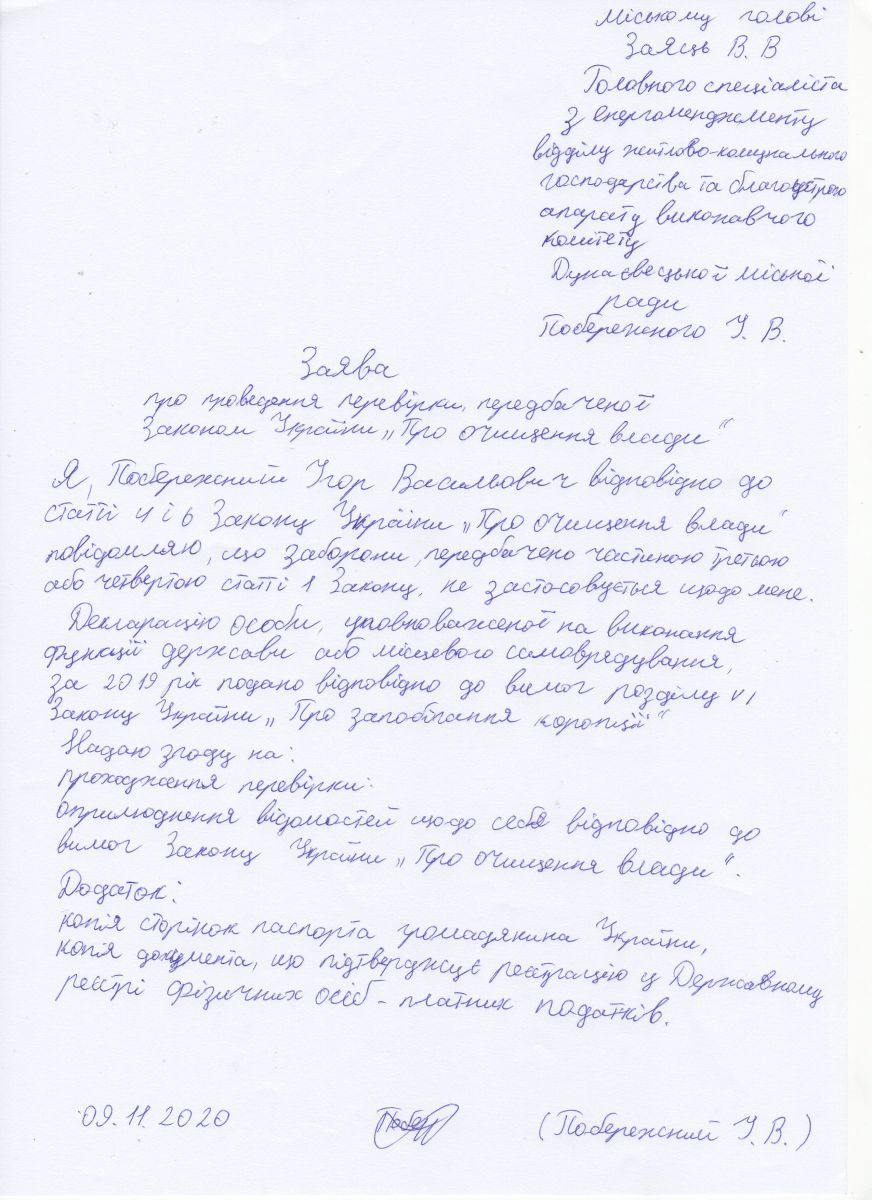 Міському голові
Заяць В. В
Головного спеціаліста
з енергоменджменту
відділу житлово-комунального
господарства та благоустрою
апарату виконавчого
комітету
Дунаєвецької міської
ради
Побережного І. В.
Заява
про проведення перевірки, передбаченої
Законом України „Про очищення влади"
Я, Побережний Ігор Васильович відповідно до
статті 4 і 6 Закону України „Про очищення влади"
повідомляю, що заборони, передбачено частиною третьою
або четвертою статті 1 Закону, не застосовується щодо мене.
Декларацію особи, уповноваженої на виконання
функції держави або місцевого самоврядування,
за 2019 рік подано відповідно до вимог розділу VI
Закону України „Про запобігання корупції"
Надаю згоду на:
проходження перевірки:
оприлюднення відомостей щодо себе відповідно до
вимог Закону України „Про очищення влади".
Додаток:
копія сторінок паспорта громадянина України,
копія документа, що підтверджує реєстрацію у Державному
реєстрі фізичних осіб - платник податків.
09.11.2020 Побер (Побережний І. В.)